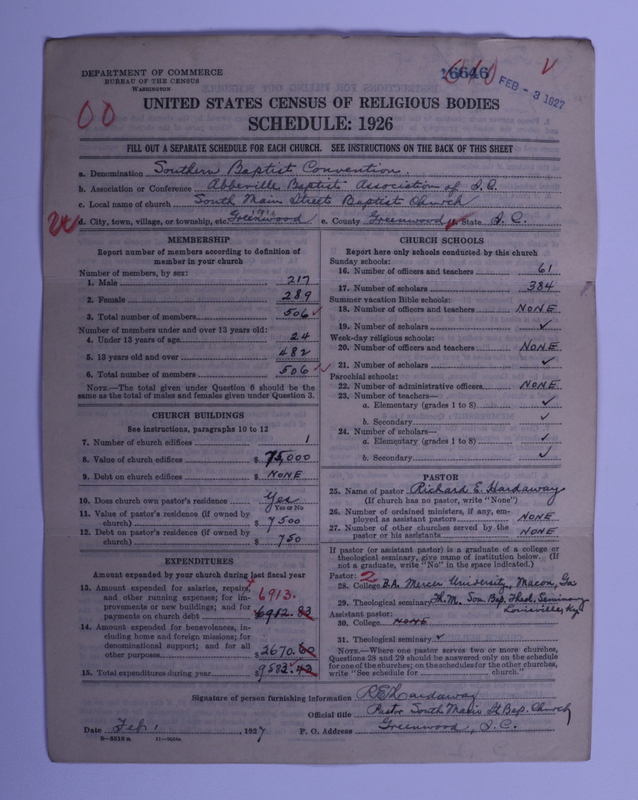 DEPARTMENT OF COMMERCE
BUREAU OF THE CENSUS
WASHINGTON
16646
FEB - 3 1927
00
UNITED STATES CENSUS OF RELIGIOUS BODIES
SCHEDULE: 1926
FILL OUT A SEPARATE SCHEDULE FOR EACH CHURCH. SEE INSTRUCTIONS ON THE BACK OF THIS SHEET
a. Denomination Southern Baptist Convention.
b. Association or Conference Abbeville Baptist Association of S.C.
c. Local name of church South Main Street Baptist Church
d. City, town, village, or township, etc. Greenwood e. County Greenwood State S.C.
MEMBERSHIP
Report number of members according to definition of
member in your church
Number of members, by sex:
1. Male 217
2. Female 289
3. Total number of members 506 ✓
Number of members under and over 13 years old:
4. Under 13 years of age 24
5. 13 years old and over 482
6. Total number of members 506 ✓
NOTE.—The total given under Question 6 should be the
same as the total of males and females given under Question 3.
CHURCH BUILDINGS
See instructions, paragraphs 10 to 12
7. Number of church edifices 1
8. Value of church edifices $ 75,000
9. Debt on church edifices $ NONE
10. Does church own pastor's residence Yes
Yes or No
11. Value of pastor's residence (if owned by
church) $ 7500
12. Debt on pastor's residence (if owned by
church) $ 750
EXPENDITURES
Amount expended by your church during last fiscal year
13. Amount expended for salaries, repairs,
and other running expenses; for im-
provements or new buildings; and for
payments on church debt 6913.
6912.83
14. Amount expended for benevolences, in-
cluding home and foreign missions; for
denominational support; and for all
other purposes $ 2670.60
15. Total expenditures during year 9583.43
CHURCH SCHOOLS
Report here only schools conducted by this church
Sunday schools:
16. Number of officers and teachers 61
17. Number of scholars 384
Summer vacation Bible schools:
18. Number of officers and teachers NONE
19. Number of scholars ✓
Week-day religious schools:
20. Number of officers and teachers NONE
21. Number of scholars ✓
Parochial schools:
22. Number of administrative officers NONE
23. Number of teachers—
a. Elementary (grades 1 to 8) ✓
b. Secondary ✓
24. Number of scholars—
a. Elementary (grades 1 to 8) ✓
b. Secondary ✓
PASTOR
25. Name of pastor Richard E. Hardaway
(If church has no pastor, write "None")
26. Number of ordained ministers, if any, em-
ployed as assistant pastors NONE
27. Number of other churches served by the
pastor or his assistants NONE
If pastor (or assistant pastor) is a graduate of a college or
theological seminary, give name of institution below. (If
not a graduate, write "No" in the space indicated.)
Pastor: 2
28. College B.A. Mercer University, Macon, Ga
29. Theological seminary Th.M. Sou. Bap. Theol. Seminary
Louisville, Ky
Assistant pastor:
30. College NONE
31. Theological seminary ✓
NOTE.—Where one pastor serves two or more churches,
Questions 28 and 29 should be answered only on the schedule
for one of the churches; on the schedules for the other churches,
write "See schedule for church."
Signature of person furnishing information R E Hardaway
Official title Pastor South Main St Bap. Church
Date Feb. 1, 1927 P. O. Address Greenwood, S.C.